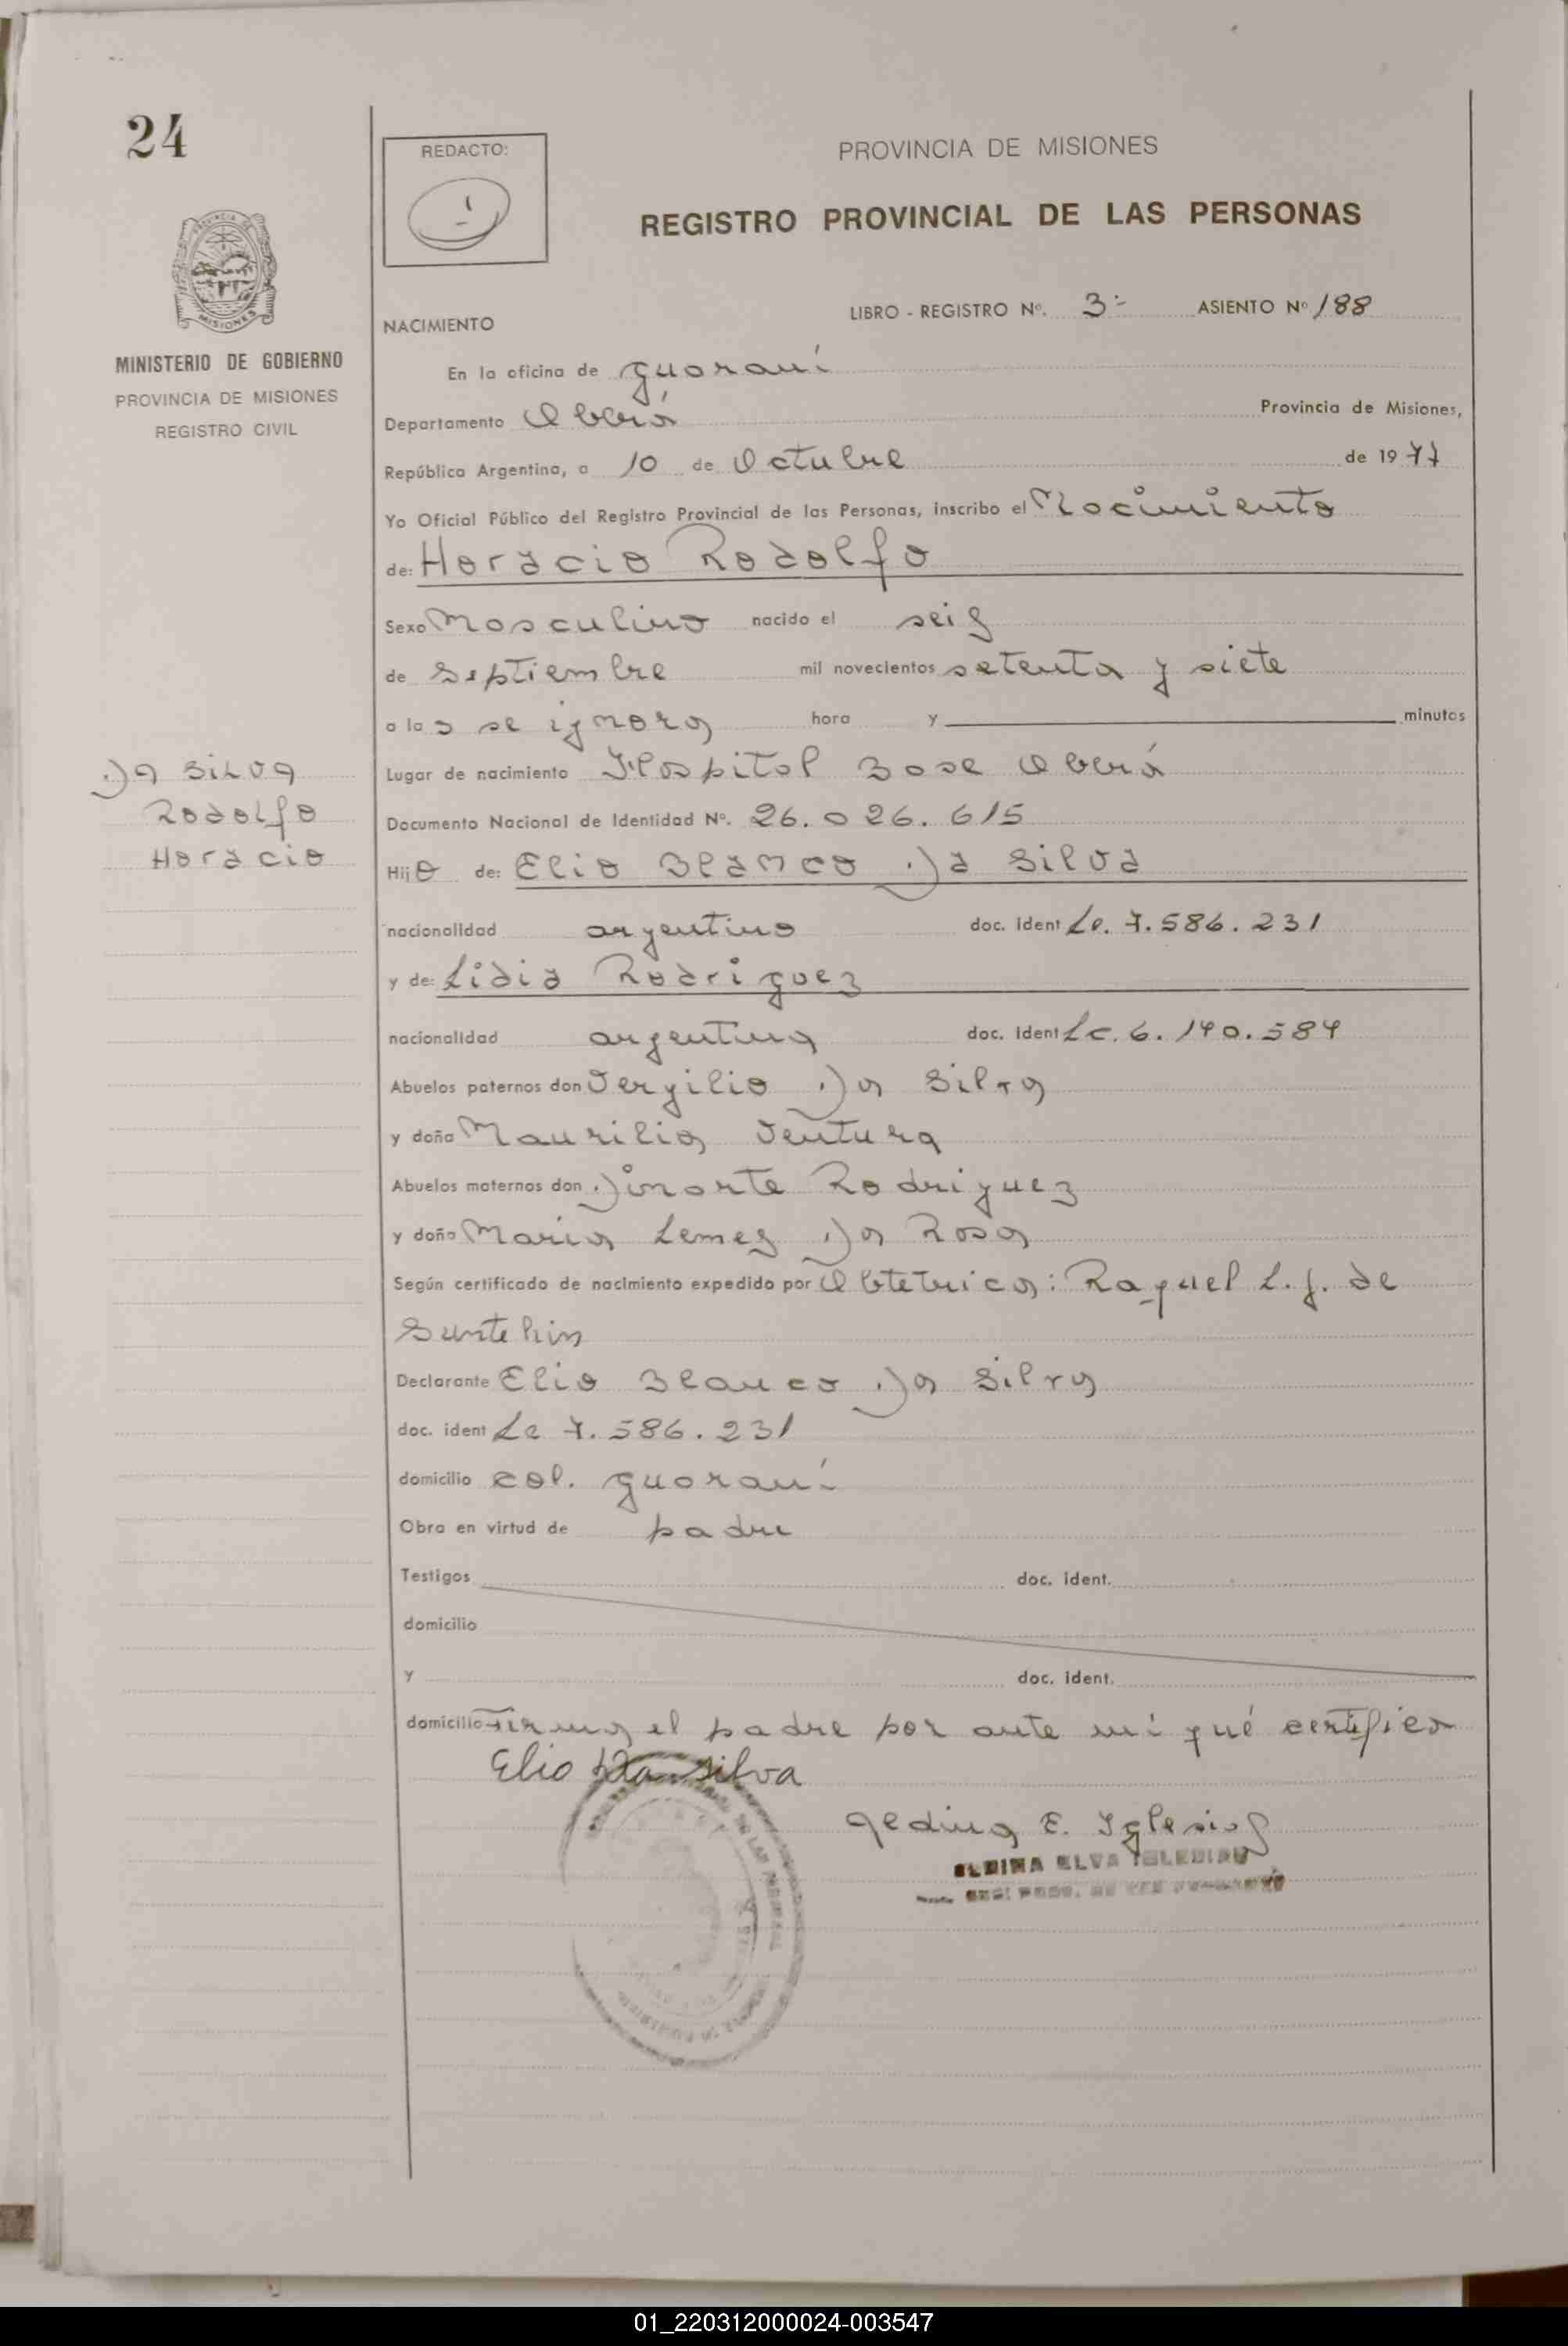 24
REDACTO:
PROVINCIA DE MISIONES
REGISTRO PROVINCIAL DE LAS PERSONAS
MISIONES
MINISTERIO DE GOBIERNO
PROVINCIA DE MISIONES
REGISTRO CIVIL
LIBRO - REGISTRO Nº. 3 ASIENTO Nº 188
NACIMIENTO
En la oficina de guaraní
Departamento Oberá Provincia de Misiones,
República Argentina, a 10 de Octubre de 1977
Yo Oficial Público del Registro Provincial de las Personas, inscribo el Nacimiento
de: Horacio Rodolfo
Sexo Masculino nacido el seis
de Septiembre mil novecientos setenta y siete
a las se ignora hora y minutos
Lugar de nacimiento Hospital Base Oberá
Da Silva
Rodolfo
Horacio
Documento Nacional de Identidad Nº. 26.026.615
Hijo de: Elio Blanco Da Silva
nacionalidad argentino doc. ident Le. 7.586.231
y de: Lidia Rodriguez
nacionalidad argentina doc. ident Lc. 6.140.584
Abuelos paternos don Vergilio Da Silva
y doña Maurilia Ventura
Abuelos maternos don Rodriguez
y doña Maria Lemes Da Rosa
Según certificado de nacimiento expedido por Obtetrica: Raquel L. g. de
Declarante Elio Blanco Da Silva
doc. ident Le 7.586.231
domicilio col. guaraní
Obra en virtud de padre
Testigos doc. ident.
domicilio
y doc. ident.
domicilio Firma el padre por ante mi qué certifico
Elio Da silva
E. Iglesias
ELVA
01_220312000024-003547